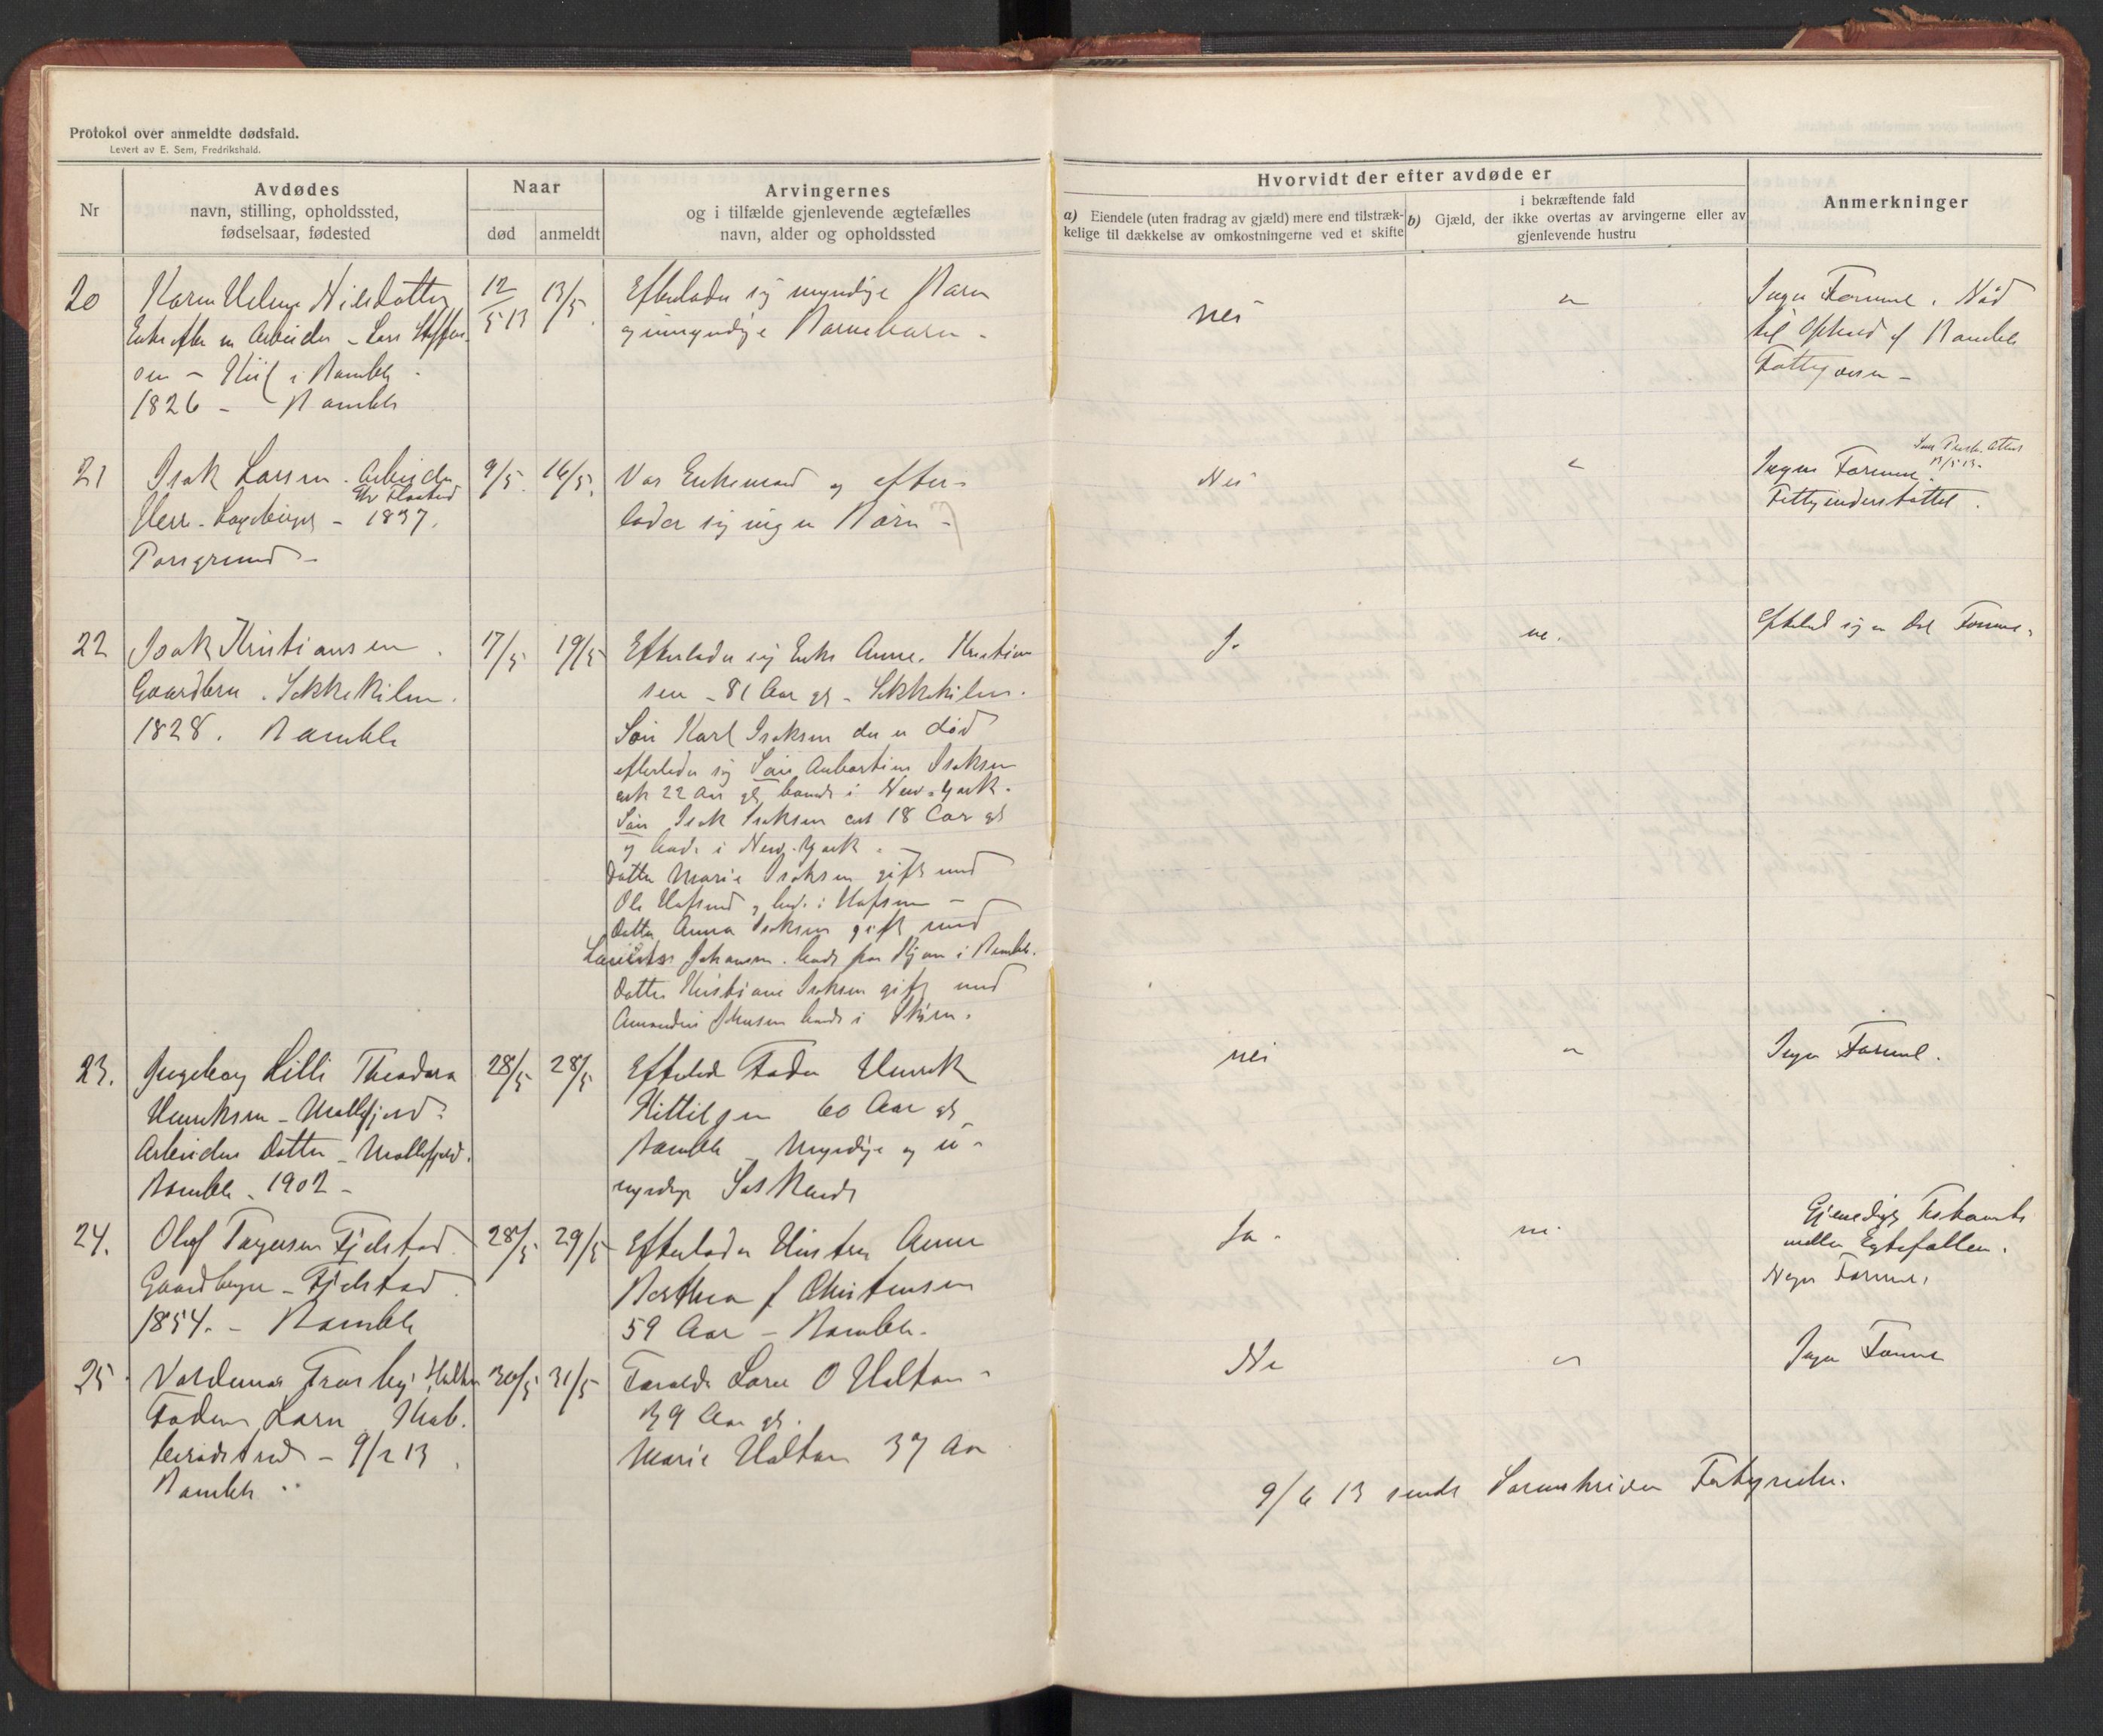 Protokol over anmeldte dødsfald.
Levert av E. Sem, Fredrikshald.
Nr
Avdødes
navn, stilling, opholdssted,
fødselsaar, fødested
Naar
død
anmeldt
Arvingernes
og i tilfælde gjenlevende ægtefælles
navn, alder og opholdssted
Hvorvidt der efter avdøde er
a) Eiendele (uten fradrag av gjæld) mere end tilstræk-
kelige til dækkelse av omkostningerne ved et skifte
i bekræftende fald
b) Gjæld, der ikke overtas av arvingerne eller av
gjenlevende hustru
Anmerkninger
20
Karen Helene Nilsdatter
Enke efter en Arbeider - Lars Steffen-
sen - i Bamble
1826 - Bamble
12/5 13
13/5
Efterlader sig myndige Barn
og umyndige Barnebarn -
nei
"
Ingen Formue. Nød
til Ophold af Bamble
Fattigvæsen -
21
Isak Larsen. Arbeider
Herr - Langesund - 1837.
Porsgrund -
9/5
16/5
Var Enkemand og efter-
lader sig ingen Børn -
Nei
"
Ingen Formue.
13/5 13.
Fattigunderstøttet.
22
Isak Kristiansen
Gaardbru. Sekkekilen.
1828. Bamble
17/5
19/5
Efterlader sig Enke Anne Kristian
sen - 81 Aar gl - Sekkekilen.
Søn Karl Isaksen der er død
efterlader sig Søn Isaksen
22 Aar gl, boende i New-York.
Søn Isak Isaksen 18 Aar gl
og boende i New-York.
Datter Marie Isaksen gift med
Ole og boende i
Datter Anna Isaksen gift med
Johansen. boende i Bamble.
Datter Kristiane Isaksen gift med
boende i Skien.
Ja
ne.
Efterlod sig en Del Formue.
23.
Ingeborg Lilli Theodora
Henriksen -
Arbeider Datter -
Bamble - 1902 -
28/5
28/5
Efterlod Fader Henrik
Kittilsen 60 Aar gl
Bamble - Myndige og u-
myndige Søskende
nei
"
Ingen Formue.
24.
Olaf Torgersen Fjelstad
Gaardbruger - Fjelstad
1854. - Bamble
28/5
29/5
Efterlader Hustru Anne
Berthea f Christensen
59 Aar - Bamble.
Ja.
nei
Gjensidigt Testamente
mellem Egtefællen.
Formue.
25
Valdemar Halton
Fader Lars
9/2 13
Bamble
30/5
31/5
Forældre Lars O Halton -
39 Aar gl.
Marie Halton 37 Aar
Ne
"
Ingen Formue
9/6 13 sendt Sorenskriver Fortegnelse.